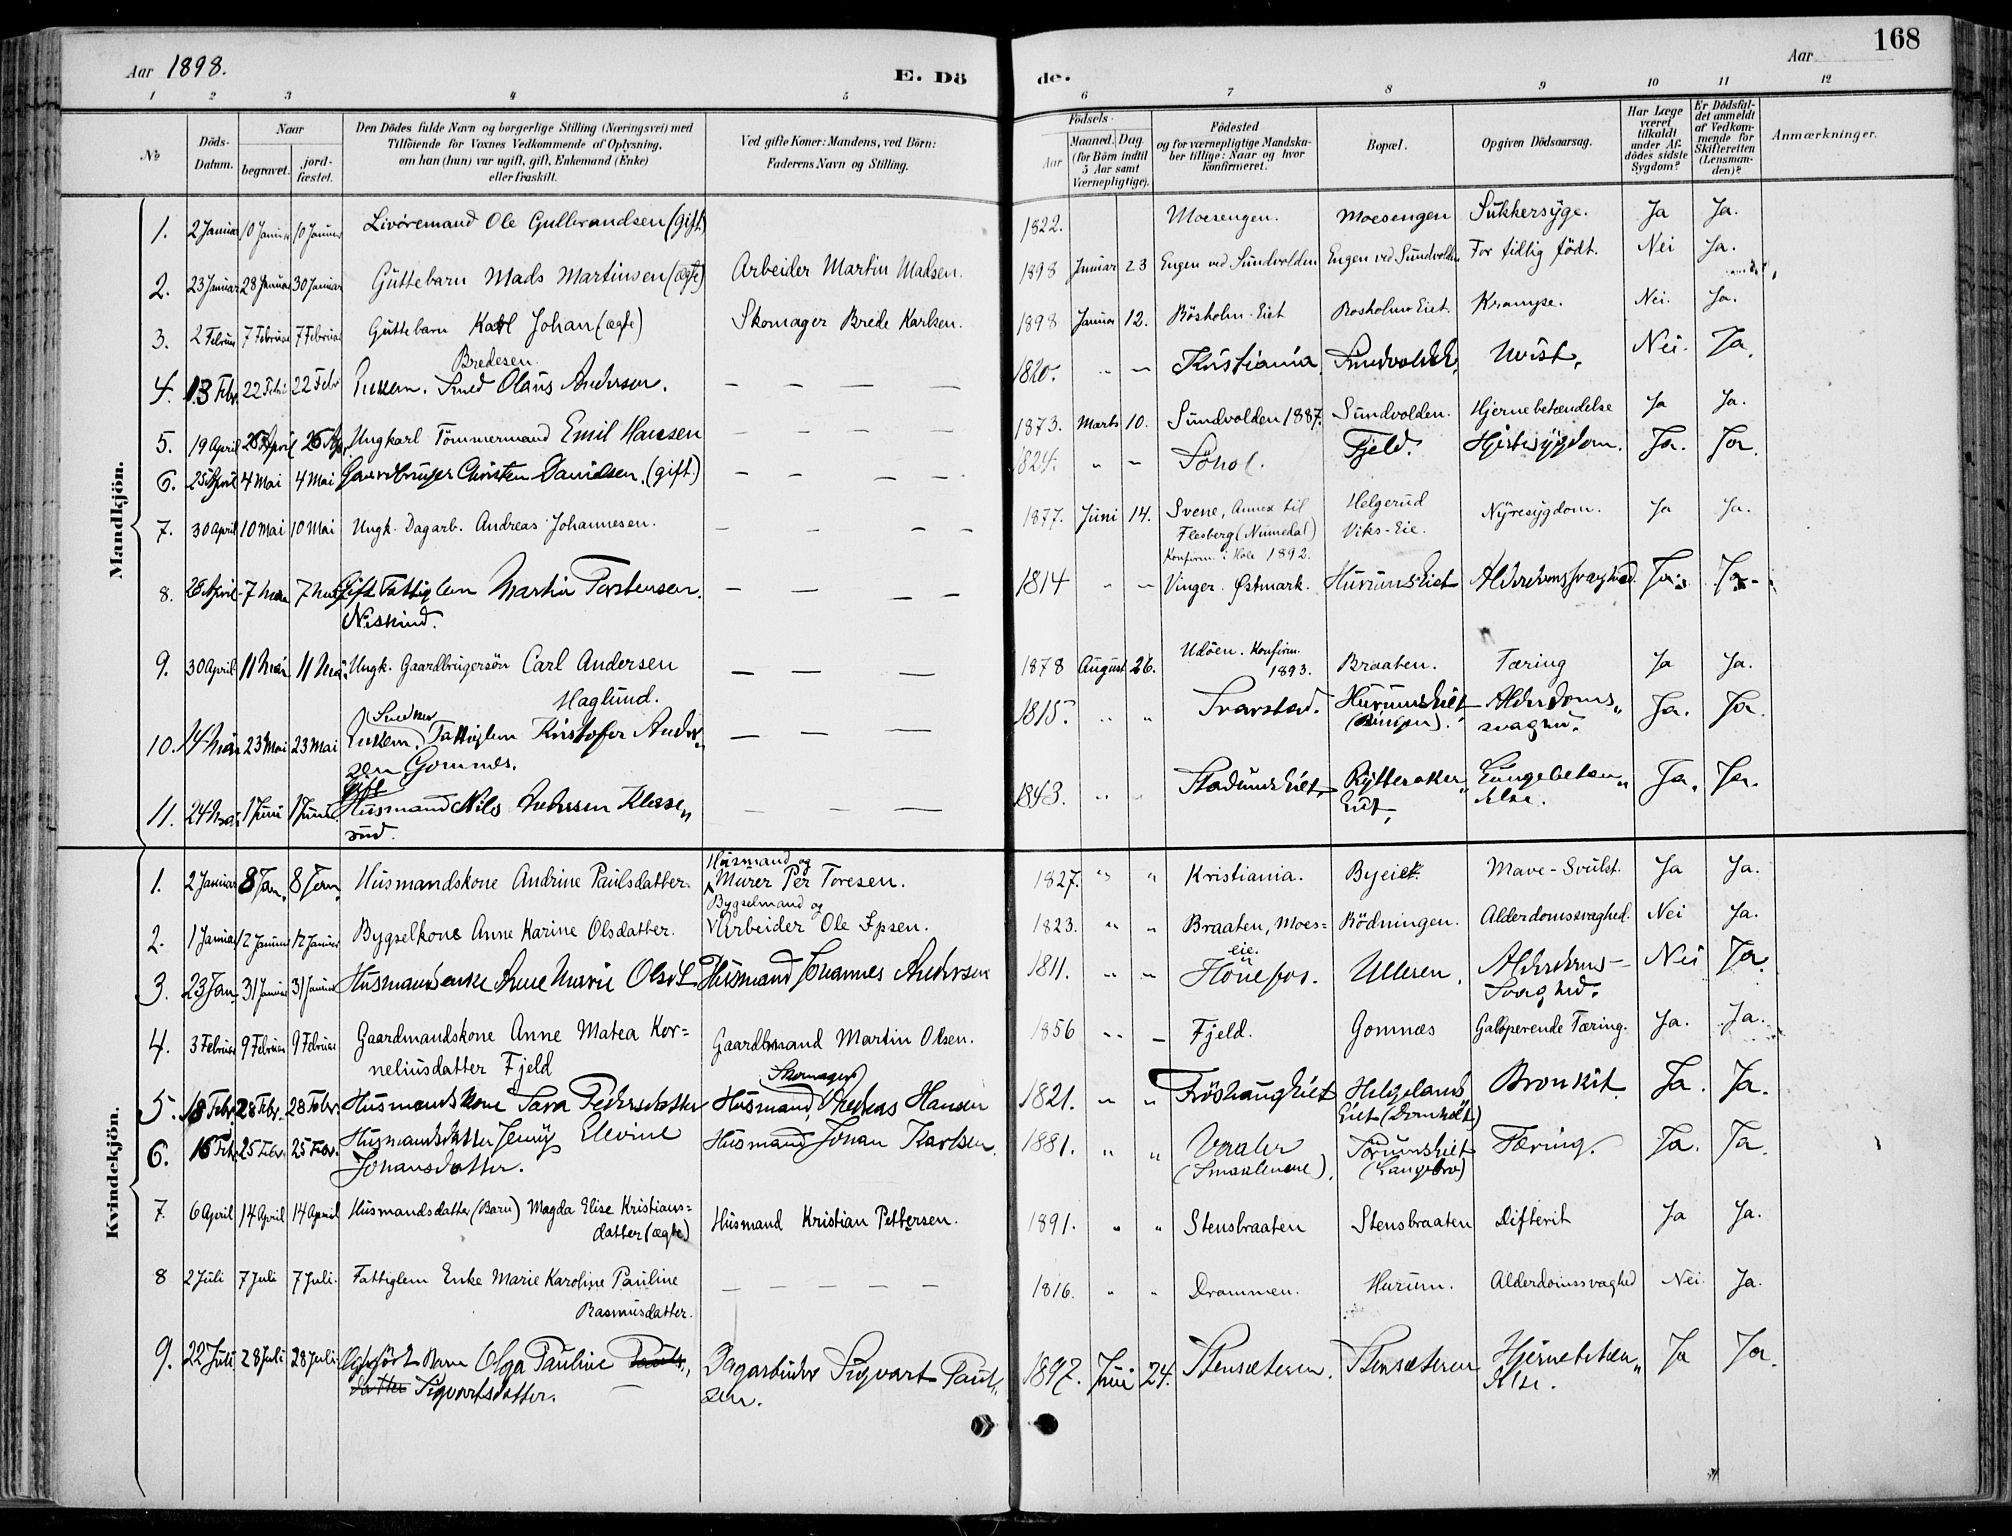 Aar 1898.
E. Dö
de.
Aar
168
1 2 3 4 5 6 7 8 9 10 11 12
No
Döds-Datum.
Naar
begravet.
jord-fæstet.
Den Dödes fulde Navn og borgerlige Stilling (Næringsvei) med
Tilföiende for Voxnes Vedkommende af Oplysning,
om han (hun) var ugift, gift, Enkemand (Enke)
eller fraskilt.
Ved gifte Koner: Mandens, ved Börn:
Faderens Navn og Stilling.
Födsels-
Aar
Maaned. Dag.
(for Börn indtil
5 Aar samt
Værnepligtige).
Födested
og for værnepligtige Mandska-
ber tillige: Naar og hvor
konfirmeret.
Bopæl.
Opgiven Dödsaarsag.
Har Læge
været
tilkaldt
under Af-
dödes sidste
Sygdom?
Er Dödsfal-
det anmeldt
af Vedkom-
mende for
Skifteretten
(Lensman-
den)?
Anmærkninger.
Mandkjön.
1. 2 Januar 10 Januar 10 Januar Livöremand Ole Gulbrandsen (gift) 1822. Moesengen. Moesengen Sukkersyge. Ja Ja.
2. 23 Januar 28 Januar 30 Januar Guttebarn Mads Martinsen (ægte) Arbeider Martin Madsen. 1898 Januar 23 Engen ved Sundvolden Engen ved Sundvolden For tidlig födt. Nei Ja.
3. 2 Februar 7 Februar 7 Februar Guttebarn Karl Johan (ægte) Skomager Brede Karlsen. 1898 Januar 12. Rösholm-Eiet Rosholm Eiet. Krampe. Nei. Ja.
Bredesen.
4. 13 Febr. 22 Febr 22 Febr Enkem. Smed Olaus Andersen. 1820. Kristiania Sundvolden Uvist. Nei. Ja.
5. 19 April 26 April 26 Apr. Ungkarl Tömmermand Emil Hansen 1873. Marts 10. Sundvolden 1887. Sundvolden. Hjernebetændelse Ja Ja.
6. 25 April 4 Mai 4 Mai Gaardbruger Christen Davidsen. (gift) 1824. Sohol. Fjeld. Hjertesygdom. Ja. Ja.
7. 30 April 10 Mai 10 Mai Ungk. Dagarb. Andreas Johannesen. 1877. Juni 14. Svene, Annex til Helgerud Nyresygdom. Ja Ja.
Flesberg (Numedal) Viks-Eie.
Konfirm. i Hole 1892.
8. 28 April 7 Mai 7 Mai Gift Fattiglem Martin Torstensen 1814 Vinger. Østmark. Hurums Eiet Alderdomssvaghed Ja. Ja.
9. 30 April 11 Mai 11 Mai Ungk. Gaardbrugersön Carl Andersen 1878 August 26. Udöen. Konfirm. Braaten. Tæring Ja Ja.
Haglund. 1893.
10. 14 Mai 23 Mai 23 Mai Enkem. Fattiglem Kristofer Ander- 1815. Svarstad. Hurums Eiet Alderdoms- Ja. Ja.
sen Gomnæs. svaghed.
Gift
11. 24 Mai 1 Juni 1 Juni Husmand Nils Andersen Klese- 1843. Stadums Eiet Rytteraker Lungebetæn- Ja. Ja.
rud. Eiet, delse.
Kvindekjön.
Husmand og
1. 2 Januar 8 Jan. 8 Jan. Husmandskone Andrine Paulsdatter. Murer Per Toresen. 1827. Kristiania. Byeiet. Mave-Svulst. Ja Ja.
Bygselmand og
2. 1 Januar 12 Januar 12 Januar Bygselkone Anne Karine Olsdatter. Arbeider Ole Ipsen. 1823. Braaten, Moes= Rödningen. Alderdomssvaghed. Nei Ja.
eie.
3. 23 Jan. 31 Januar 31 Januar Husmandsenke Anne Marie Olsdt. Husmand Johannes Andersen 1811. Hönefos. Ulleren. Alderdoms- Nei Ja.
Svaghed.
4. 3 Februar 9 Februar 9 Februar Gaardmandskone Anne Matea Kor= Gaardmand Martin Olsen. 1856 Fjeld. Gomnæs Galoperende Tæring. Ja. Ja.
neliusdatter Fjeld
Skomager
5. 18 Febr. 28 Febr. 28 Febr. Husmandskone Sara Pedersdatter Husmand Andreas Hansen 1821. Fröshaug Eiet Helgelands Bronkit. Ja. Ja.
Eiet (Domholt)
6. 16 Feb. 25 Febr. 25 Febr. Husmandsdatter Jenny Elevine Husmand Johan Karlsen. 1881. Vaaler Törums Eiet Tæring. Ja. Ja.
Johansdatter. (Smaalenene). (Langebro)
7. 6 April 14 April 14 April Husmandsdatter (Barn) Magda Elise Kristians= Husmand Kristian Pettersen. 1891. Stensbraaten Stensbraaten Difterit Ja Ja.
datter (ægte)
8 2 Juli 7 Juli 7 Juli. Fattiglem Enke Marie Karoline Pauline 1816. Drammen. Hurum. Alderdomssvaghed Nei Ja.
Rasmusdatter.
9. 22 Juli 28 Juli 28 Juli Barn Olga Pauline Pauls- Dagarbeider Sigvart Paul- 1897. Juni 24. Stensæteren. Stensæteren Hjernebetæn- Ja Ja.
datter Sigvartsdatter. sen. delse.